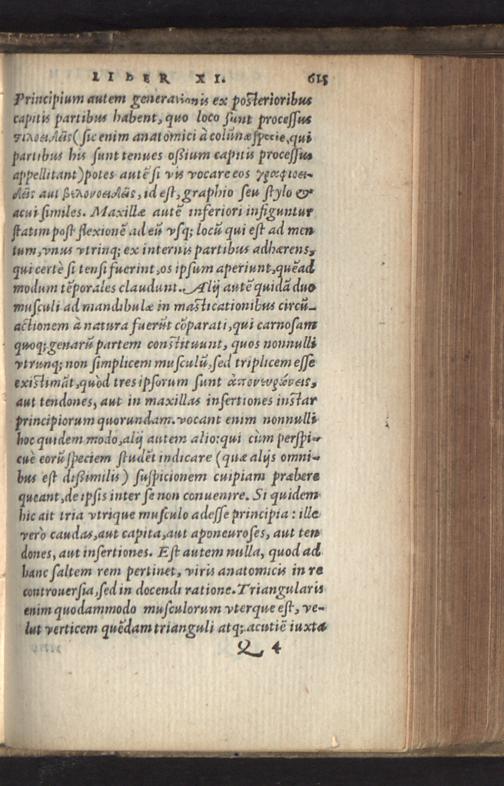 LIBER XI. 615
Principium autem generationis ex posterioribus
capitis partibus habent, quo loco sunt processus
στιλοειδεῖς (sic enim anatomici à colũnæ specie, qui
partibus his sunt tenues oßium capitis processus
appellitant) potes autẽ si vis vocare eos γραφιοει-
δεῖς aut βελονοειδεῖς, id est, graphio seu stylo &
acui similes. Maxillæ autẽ inferiori infiguntur
statim post flexionẽ ad eũ vsq; locũ qui est ad men
tum, vnus vtrinq; ex internis partibus adhærens,
qui certè si tensi fuerint, os ipsum aperiunt, quẽad
modum tẽporales claudunt. Alij autẽ quidã duo
musculi ad mandibulæ in masticationibus circũ-
actionem à natura fuerũt cõparati, qui carnosam
quoq; genarũ partem constituunt, quos nonnulli
vtrunq; non simplicem musculũ, sed triplicem esse
existimãt, quòd tres ipsorum sunt ἀπονευρώσεις,
aut tendones, aut in maxillas insertiones instar
principiorum quorundam. vocant enim nonnulli
hoc quidem modo, alij autem alio: qui cùm perspi-
cuè eorũ speciem studẽt indicare (quæ alijs omni-
bus est dißimilis) suspicionem cuipiam præbere
queant, de ipsis inter se non conuenire. Si quidem
hic ait tria vtrique musculo adesse principia: ille
verò caudas, aut capita, aut aponeuroses, aut ten
dones, aut insertiones. Est autem nulla, quod ad
hanc saltem rem pertinet, viris anatomicis in re
controuersia, sed in docendi ratione. Triangularis
enim quodammodo musculorum vterque est, ve-
lut verticem quẽdam trianguli atq; acutiẽ iuxta
Q 4